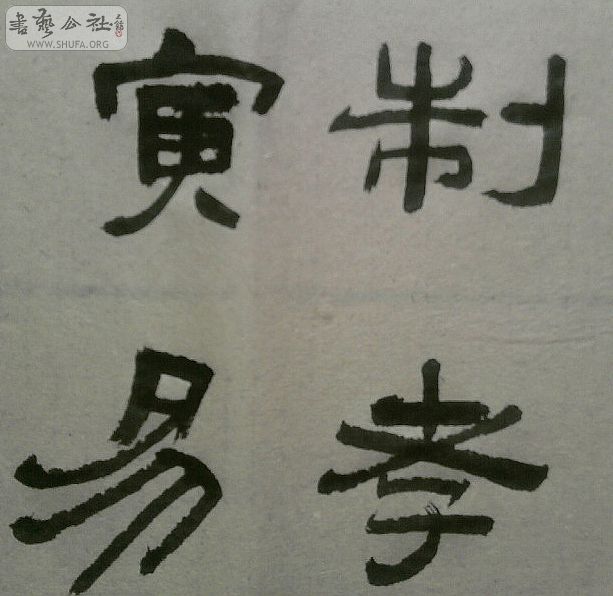 書藝公社
WWW.SHUFA.ORG
制孝
寅易